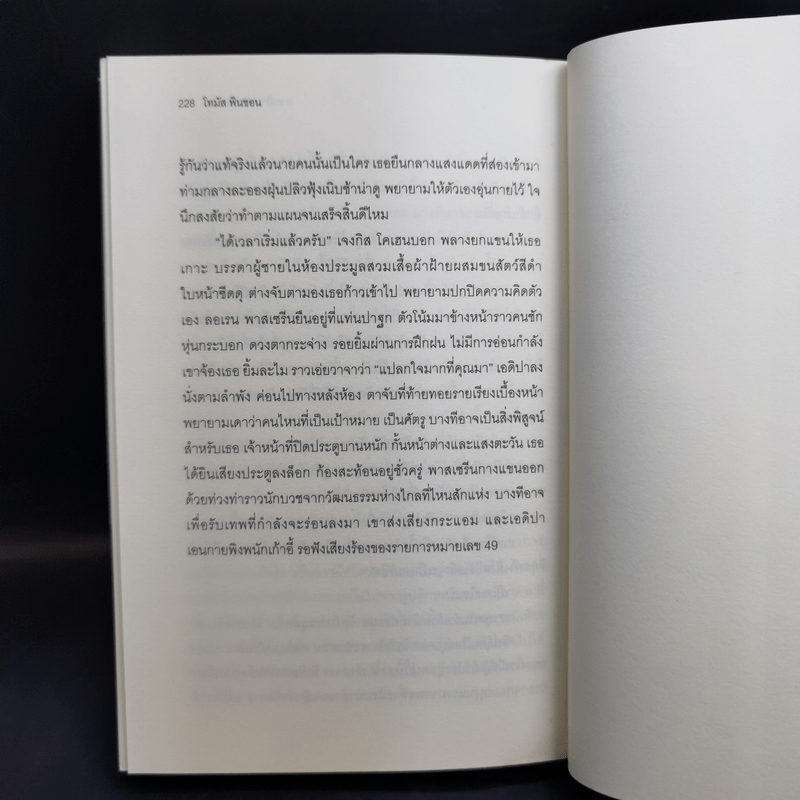 228 โทมัส พินชอน
รู้กันว่าแท้จริงแล้วนายคนนั้นเป็นใคร เธอยืนกลางแสงแดดที่ส่องเข้ามา
ท่ามกลางละอองฝุ่นปลิวฟุ้งเนิบช้าน่าดู พยายามให้ตัวเองอุ่นกายไว้ ใจ
นึกสงสัยว่าทำตามแผนจนเสร็จสิ้นดีไหม
“ได้เวลาเริ่มแล้วครับ” เจงกิส โคเฮนบอก พลางยกแขนให้เธอ
เกาะ บรรดาผู้ชายในห้องประมูลสวมเสื้อผ้าฝ้ายผสมขนสัตว์สีดำ
ใบหน้าซีดดุ ต่างจับตามองเธอก้าวเข้าไป พยายามปกปิดความคิดตัว
เอง ลอเรน พาสเซรีนยืนอยู่ที่แท่นปาฐก ตัวโน้มมาข้างหน้าราวคนชัก
หุ่นกระบอก ดวงตากระจ่าง รอยยิ้มผ่านการฝึกฝน ไม่มีการอ่อนกำลัง
เขาจ้องเธอ ยิ้มละไม ราวเอ่ยวาจาว่า “แปลกใจมากที่คุณมา” เอดิปาลง
นั่งตามลำพัง ค่อนไปทางหลังห้อง ตาจับที่ท้ายทอยรายเรียงเบื้องหน้า
พยายามเดาว่าคนไหนที่เป็นเป้าหมาย เป็นศัตรู บางทีอาจเป็นสิ่งพิสูจน์
สำหรับเธอ เจ้าหน้าที่ปิดประตูบานหนัก กั้นหน้าต่างและแสงตะวัน เธอ
ได้ยินเสียงประตูลงล็อก ก้องสะท้อนอยู่ชั่วครู่ พาสเซรีนกางแขนออก
ด้วยท่วงท่าราวนักบวชจากวัฒนธรรมห่างไกลที่ไหนสักแห่ง บางทีอาจ
เพื่อรับเทพที่กำลังจะร่อนลงมา เขาส่งเสียงกระแอม และเอดิปา
เอนกายพิงพนักเก้าอี้ รอฟังเสียงร้องของรายการหมายเลข 49